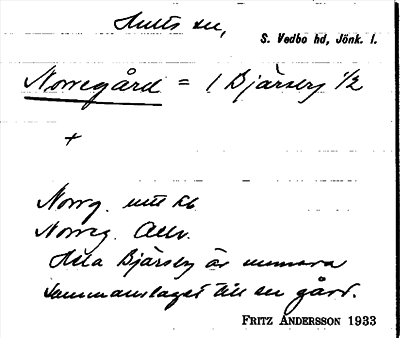 Hults sn,
S. Vedbo hd, Jönk. l.
Norregård = 1 Bjärsby 1/2
+
Norrg. utt kb
Norreg. Allv.
Hela Bjärsby är numera
sammanslaget till en gård.
FRITZ ANDERSSON 1933